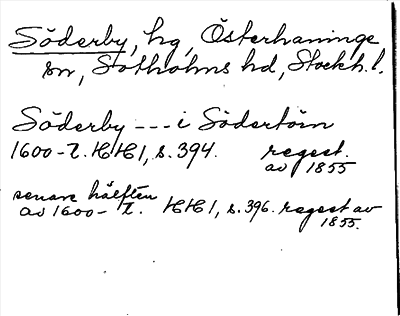 Söderby, hg, Österhaninge
sn, Sotholms hd, Stockh. l.
Söderby --- i Södertörn
1600-t. HH1, s. 394. regest.
av 1855
senare hälften
av 1600- t. HH1, s. 396. regest av
1855.